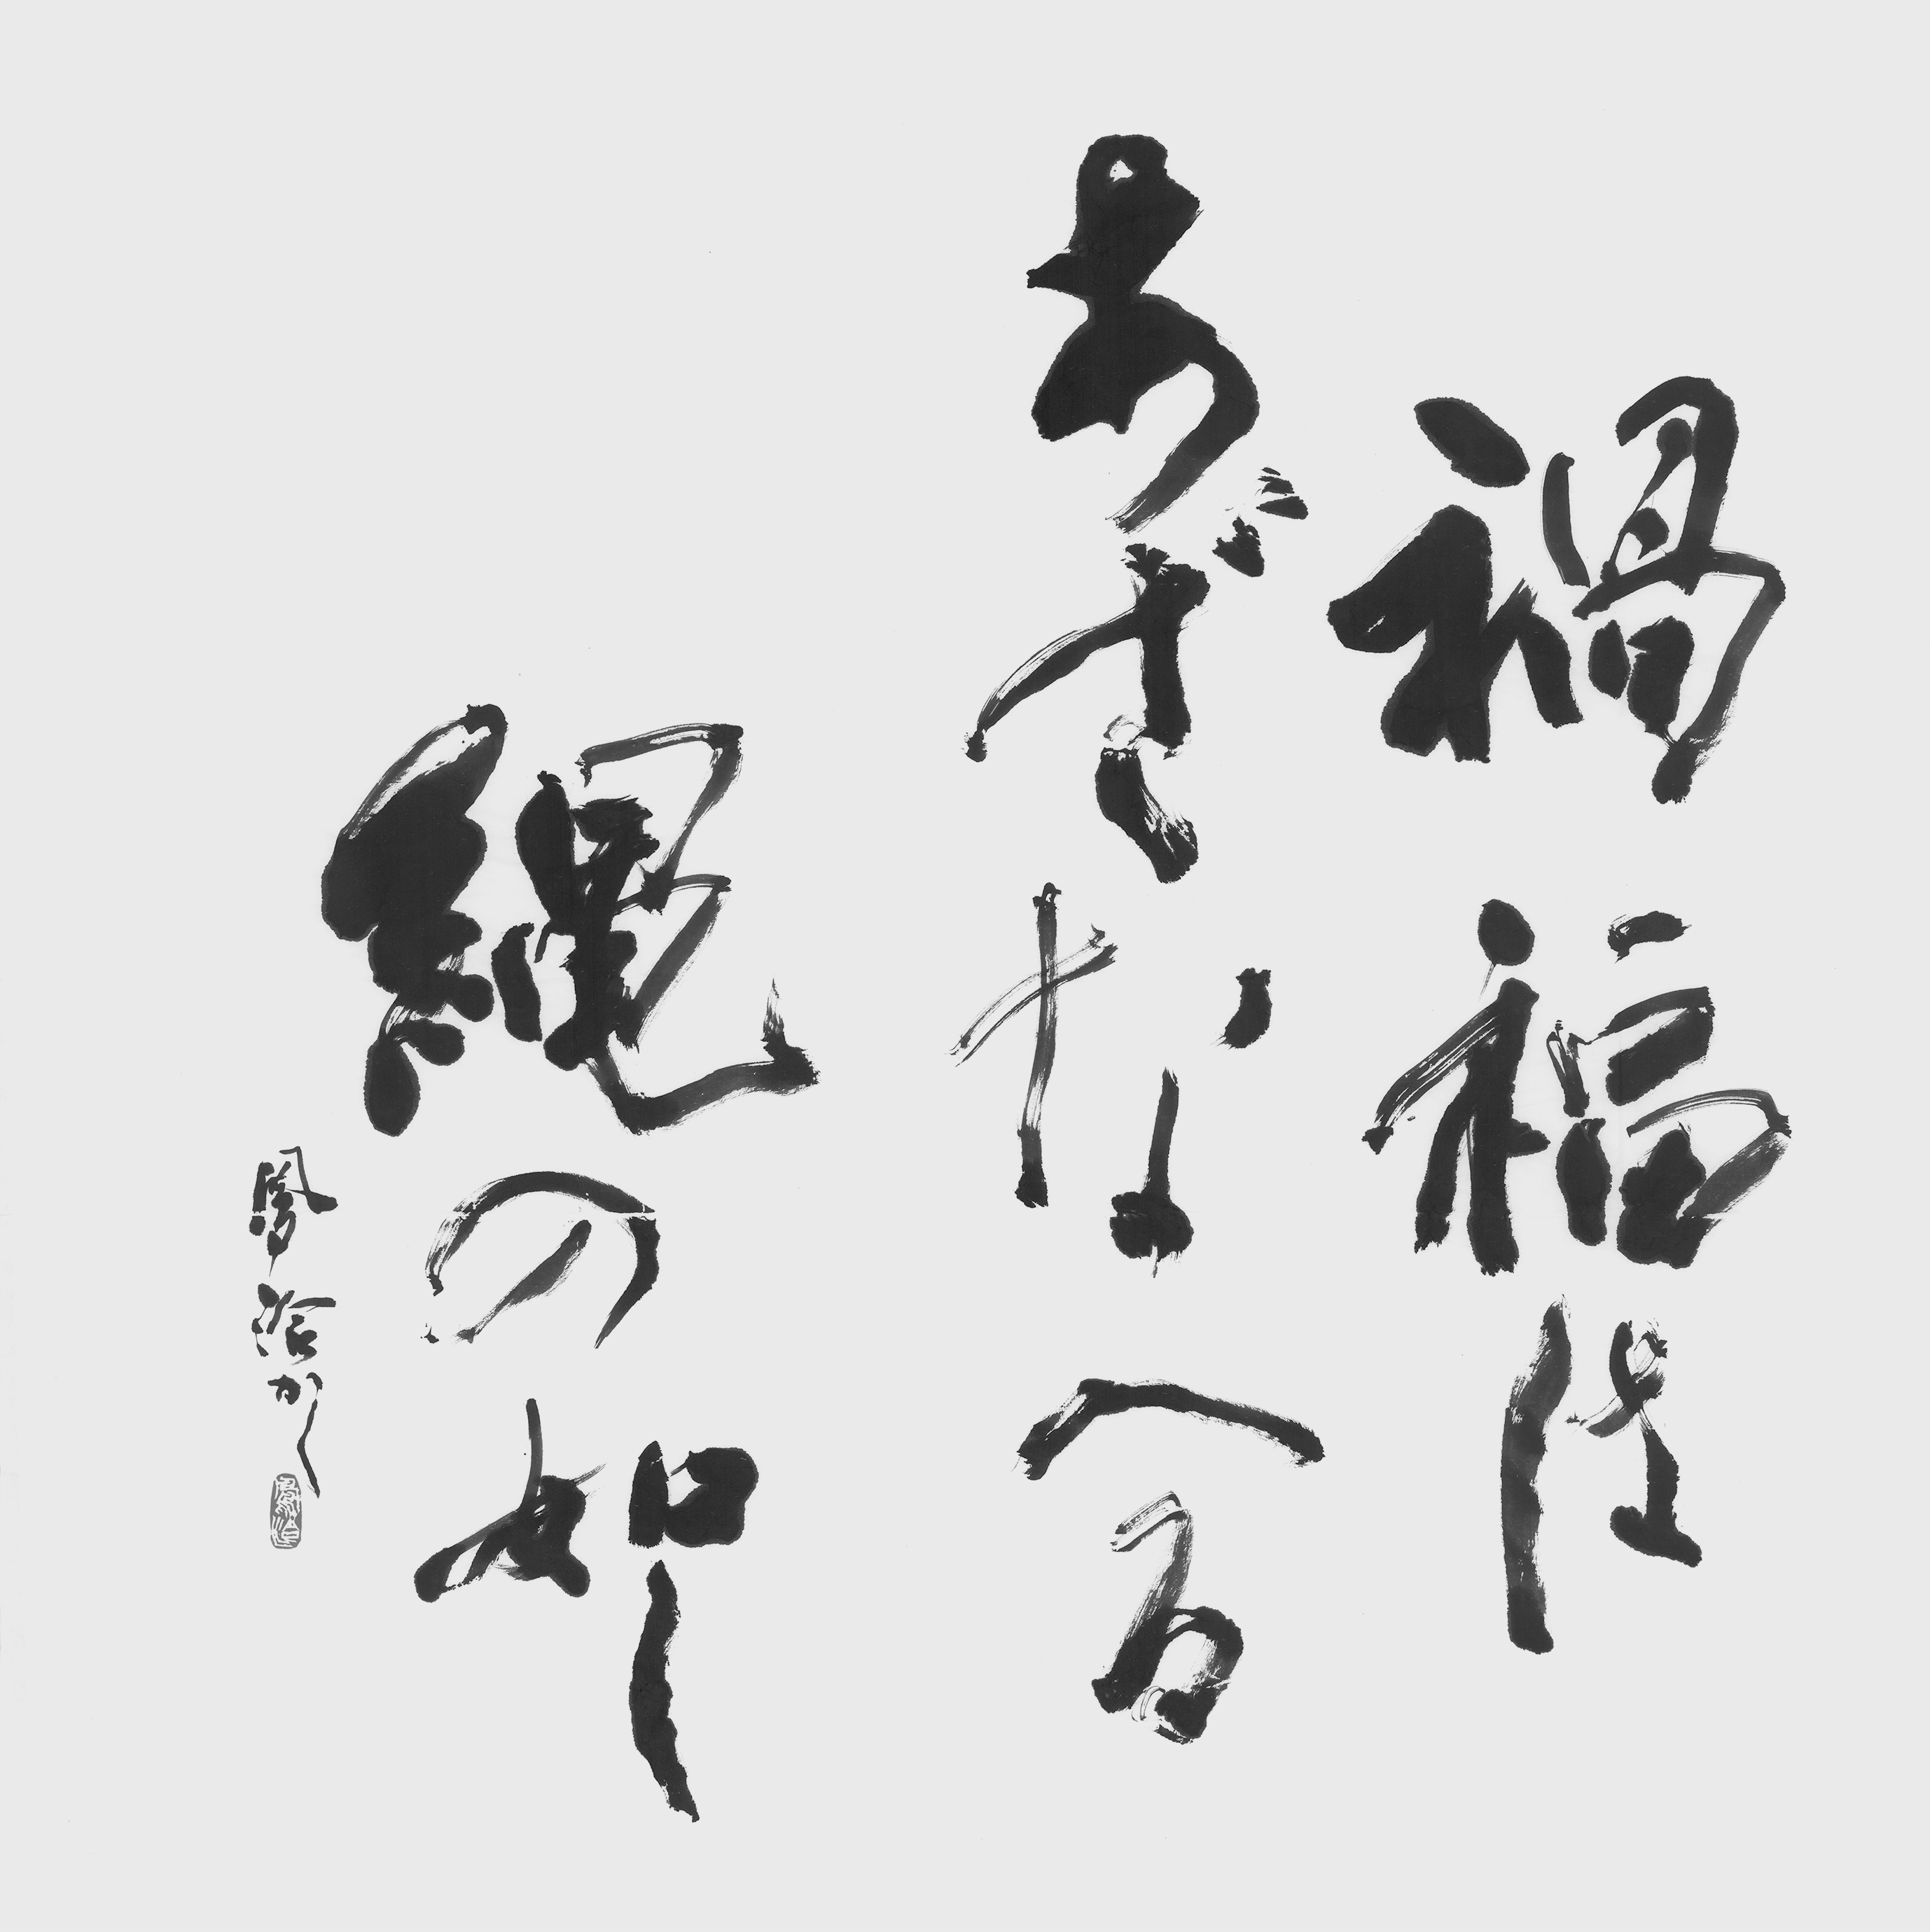 禍福は
あざなへる
縄の如し
かく